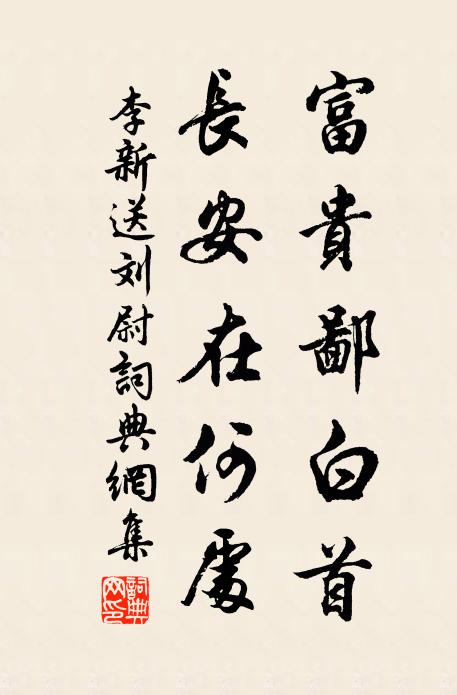 富貴鄙白首
長安在何處
李新送刘尉詞典網集
詞典网印